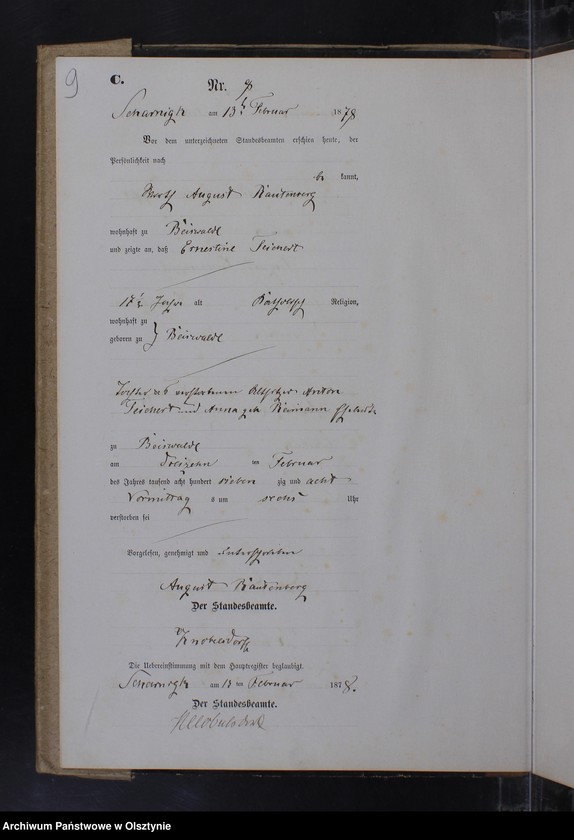 9
C.
Nr. 9
Scharnigk am 13t Februar 1878
Vor dem unterzeichneten Standesbeamten erschien heute, der
Persönlichkeit nach
be kannt,
August Rautenberg
wohnhaft zu Beiswalde
und zeigte an, daß Ernestine Teichert
17 ½ Jahr alt Katholisch Religion,
wohnhaft zu
geboren zu } Beiswalde
Tochter des verstorbenen Anton
Teichert und Anna geb. Reimann
zu Beiswalde
am dreizehn ten Februar
des Jahres tausend acht hundert sieben zig und acht
Vormittag s um sechs Uhr
verstorben sei
Vorgelesen, genehmigt und unterschrieben
August Rautenberg
Der Standesbeamte.
Die Uebereinstimmung mit dem Hauptregister beglaubigt.
Scharnigk am 13 ten Februar 1878.
Der Standesbeamte.
Archiwum Państwowe w Olsztynie